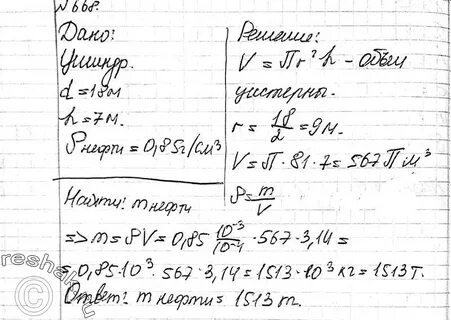 №668.
Дано:
Цилиндр.
d = 18м
h = 7м.
ρ нефти = 0,85г/см³
Найти: m нефти
Решение:
V = Пr²h - объём
цистерны.
r = 18/2 = 9м.
V = П · 81 · 7 = 567 П м³
ρ = m/V
=> m = ρV = 0,85 10⁻³/10⁻⁶ · 567 · 3,14 =
= 0,85·10³ · 567 · 3,14 = 1513 · 10³ кг = 1513 т.
Ответ: m нефти = 1513 т.
reshak.ru